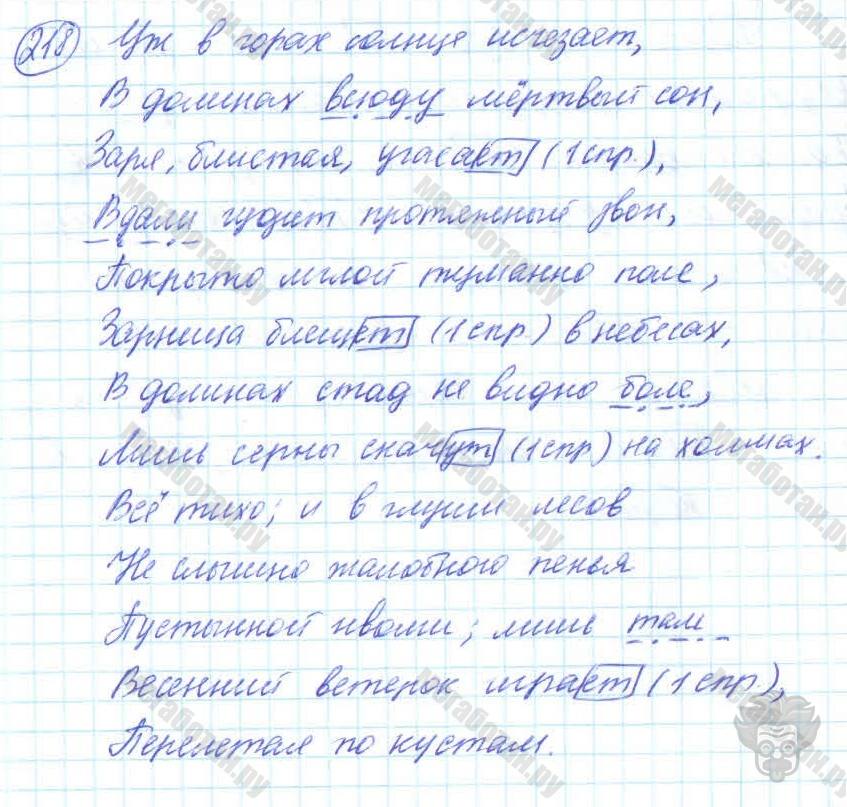 218 Уж в горах солнце исчезает,
В долинах всюду мёртвый сон,
Заря, блистая, угасает (1 спр.),
Вдали гудит протяжный звон,
Покрыто мглой туманно поле,
Зарница блещет (1 спр.) в небесах,
В долинах стад не видно боле,
Лишь серны скачут (1 спр.) на холмах.
Всё тихо; и в глуши лесов
Не слышно жалобного пенья
Пустынной иволги; лишь там
Весенний ветерок играет (1 спр.),
Перелетая по кустам.
мегаботан.ру